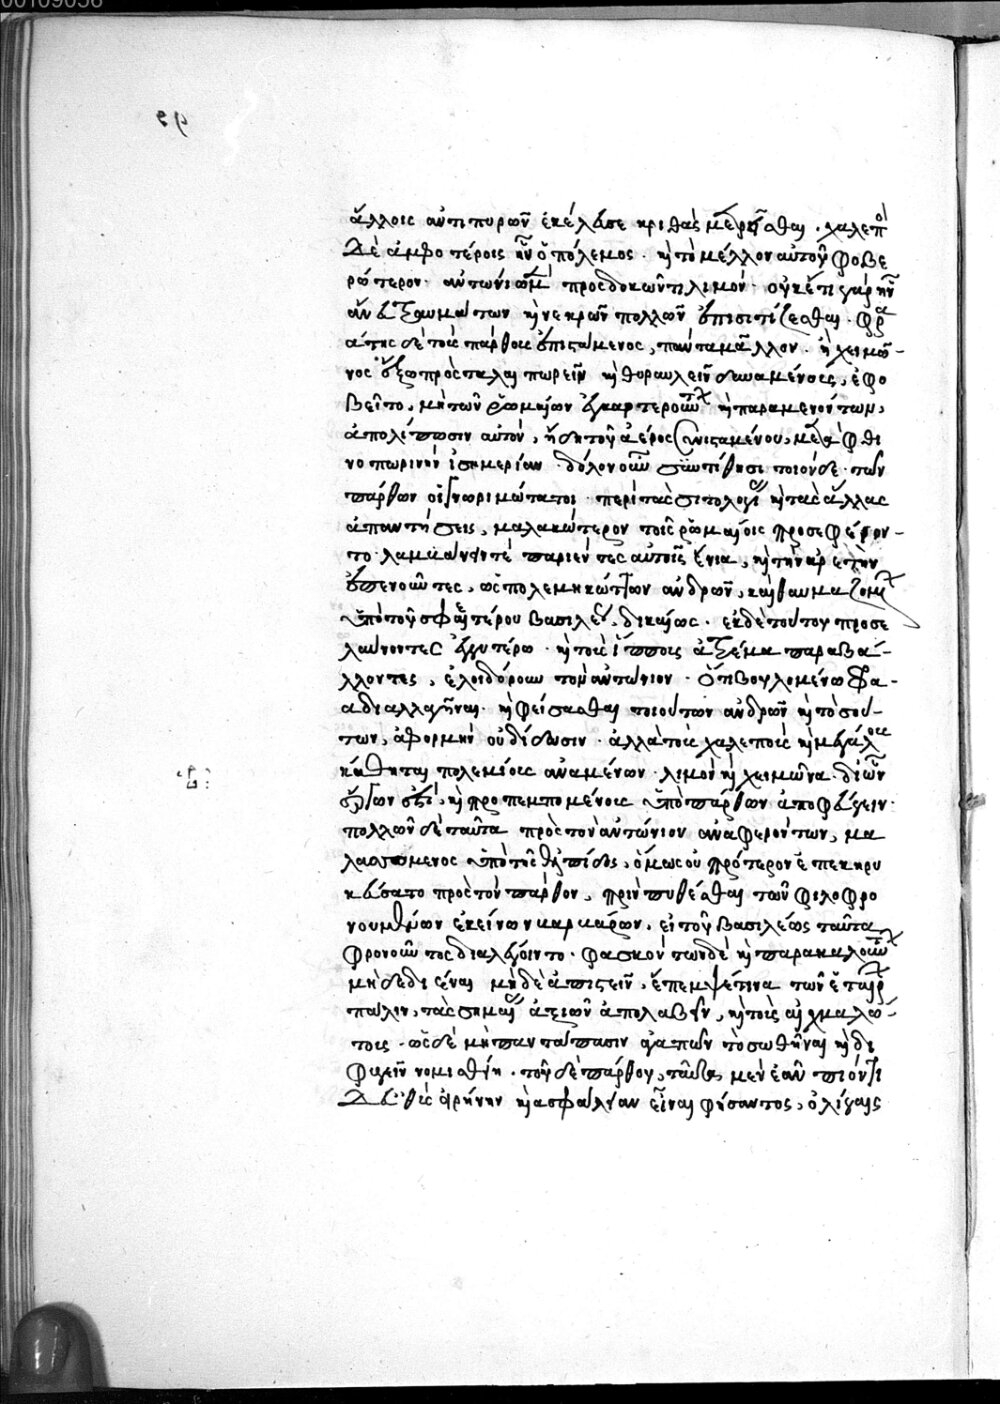 ἄλλοις ἀντὶ πυρῶν ἐκέλευσε κριθὰς μετρεῖσθαι. χαλεπὸ
δὲ ἀμφοτέροις ἦν ὁ πόλεμος. καὶ τὸ μέλλον αὐτοῦ φοβε
ρώτερον. ἀντωνίω μὲν προσδοκῶντι λιμόν. οὐκέτι γὰρ ἦν
ἄνευ τραυμάτων καὶ νεκρῶν πολλῶν ἐπισιτίζεσθαι. φρα
άτης δὲ τοὺς πάρθους ἐπιστάμενος, πάντα μᾶλλον. ἢ χειμῶ-
νος ἔξω προσταλαιπωρεῖν καὶ θυραυλεῖν δυναμένους, ἐφο
βεῖτο, μὴ τῶν ῥωμαίων ἐγκαρτερούντων καὶ παραμενόντων,
ἀπολίπωσιν αὐτὸν, ἤδη τοῦ ἀέρος συνισταμένου, μετὰ φθι
νοπωρινὴν ἰσημερίαν. δόλον οὖν συντίθησι τοιόνδε. τῶν
πάρθων οἱ γνωριμώτατοι. περὶ τὰς σιτολογίας καὶ τὰς ἄλλας
ἀπαντήσεις, μαλακώτερον τοῖς ῥωμαίοις προσεφέρον-
το. λαμβάνειν τε παριέντες αὐτοῖς ἔνια, καὶ τὴν ἀρετὴν
ἐπαινοῦντες, ὡς πολεμικωτάτων ἀνδρῶν, καὶ θαυμαζομένων
ὑπὸ τοῦ σφετέρου βασιλέως, δικαίως. ἐκ δὲ τούτου προσε
λαύνοντες ἐγγυτέρω. καὶ τοὺς ἵππους ἀτρέμα παραβά-
λλοντες, ἐλοιδόρουν τὸν ἀντώνιον. ὅτι βουλομένω φρα-
άτῃ διαλλαγῆναι. καὶ φείσασθαι τοιούτων ἀνδρῶν καὶ τοσού-
των, ἀφορμὴν οὐ δίδωσιν. ἀλλὰ τοὺς χαλεποὺς καὶ μεγάλους
κάθηται πολεμίους ἀναμένων. λιμὸν καὶ χειμῶνα. δι' ὧν
ἔργον ἐστὶ, καὶ προπεμπομένους ὑπὸ πάρθων ἀποφεύγειν.
πολλῶν δὲ ταῦτα πρὸς τὸν ἀντώνιον ἀναφερόντων, μα
λασσόμενος ὑπὸ τῆς ἐλπίδος, ὅμως οὐ πρότερον ἐπεκηρυ
κεύσατο πρὸς τὸν πάρθον, πρὶν πυθέσθαι τῶν φιλοφρο
νουμένων ἐκείνων καρκάρων, εἰ τοῦ βασιλέως ταῦτα
φρονοῦντος διαλέγοιντο. φασκόντων δὲ καὶ παρακαλούντων
μὴ δεδιέναι μηδὲ ἀπιστεῖν, ἔπεμψέ τινα τῶν ἑταίρων
πάλιν, τὰς σημαίας ἀξιῶν ἀπολαβεῖν, καὶ τοὺς αἰχμαλώ-
τους. ὡς δὲ μὴ παντάπασιν ἀγαπᾶν τὸ σωθῆναι καὶ δι
φυγεῖν νομισθείη. τοῦ δὲ πάρθου, ταῦτα μὲν ἐᾶν ἀπιόντι
δ' εὐθὺς εἰρήνην καὶ ἀσφάλειαν εἶναι φήσαντος, ὀλίγαις